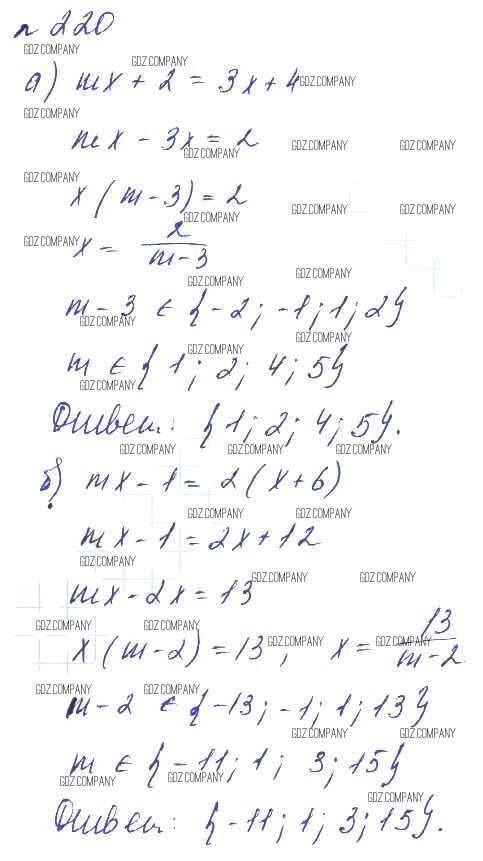 № 220
GDZ.COMPANY
GDZ.COMPANY
а) mx + 2 = 3x + 4
GDZ.COMPANY
GDZ.COMPANY
mx - 3x = 2
GDZ.COMPANY GDZ.COMPANY GDZ.COMPANY
GDZ.COMPANY
x (m - 3) = 2
GDZ.COMPANY GDZ.COMPANY GDZ.COMPANY
GDZ.COMPANY
x = 2 / (m - 3)
GDZ.COMPANY GDZ.COMPANY
m - 3 ∈ {-2; -1; 1; 2}
GDZ.COMPANY
GDZ.COMPANY GDZ.COMPANY
m ∈ {1; 2; 4; 5}
GDZ.COMPANY
Ответ: {1; 2; 4; 5}.
GDZ.COMPANY GDZ.COMPANY GDZ.COMPANY
б) mx - 1 = 2 (x + 6)
GDZ.COMPANY GDZ.COMPANY
mx - 1 = 2x + 12
GDZ.COMPANY
GDZ.COMPANY GDZ.COMPANY
mx - 2x = 13
GDZ.COMPANY GDZ.COMPANY
x (m - 2) = 13, x = 13 / (m - 2)
GDZ.COMPANY GDZ.COMPANY
GDZ.COMPANY GDZ.COMPANY
m - 2 ∈ {-13; -1; 1; 13}
GDZ.COMPANY GDZ.COMPANY
m ∈ {-11; 1; 3; 15}
GDZ.COMPANY GDZ.COMPANY
GDZ.COMPANY
Ответ: {-11; 1; 3; 15}.